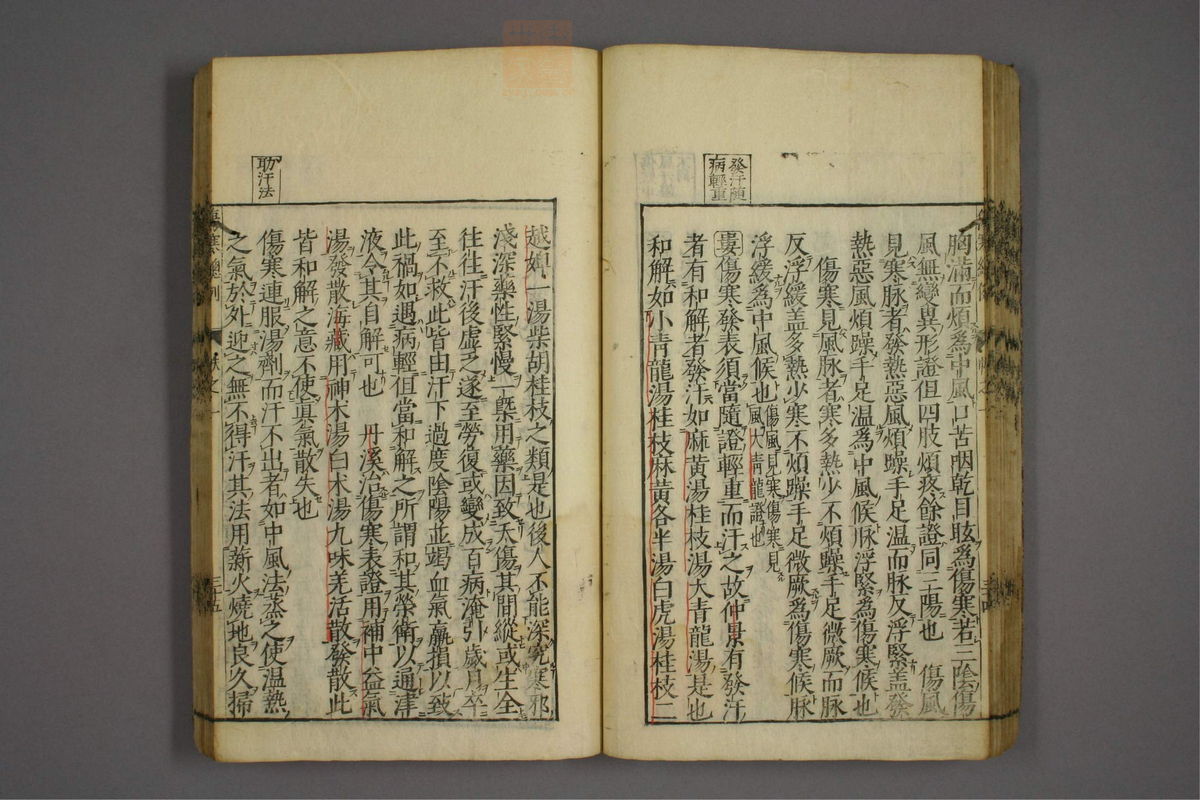 發汗随
病輕重
胸滿而煩爲中風口苦咽乾目眩爲傷寒若三陰傷
風無變異形證但四肢煩疼餘證同三陽也　傷風
見寒脉者發熱惡風煩躁手足溫而脉反浮緊盖發
熱惡風煩躁手足溫爲中風候脉浮緊爲傷寒候也
傷寒見風脉者寒多熱少不煩躁手足微厥而脉
反浮緩盖多熱少寒不煩躁手足微厥爲傷寒候脉
浮緩爲中風候也傷風見寒傷寒見
風大青龍證也
婁傷寒發表須當隨證輕重而汗之故仲景有發汗
者有和解者發汗如麻黄湯桂枝湯大青龍湯是也
和解如小青龍湯桂枝麻黄各半湯白虎湯桂枝二
越婢一湯柴胡桂枝之類是也後人不能深究寒邪
淺深藥性緊慢一槩用藥因致夭傷其間縱或生全
徃徃汗後虛之遂至勞復或變成百病淹引歲月卒
至不救此皆由汗下過度陰陽並竭血氣羸損以致
此禍如遇病輕但當和解之所謂和其榮衛以通津
液令其自解可也　丹溪治傷寒表證用補中益氣
湯發散海藏用神朮湯白朮湯九味羌活散發散此
皆和解之意不使真氣散失也
助汗法
傷寒連服湯劑而汗不出者如中風法蒸之使溫熱
之氣於外迎之無不得汗其法用薪火燒地良久掃
三十五